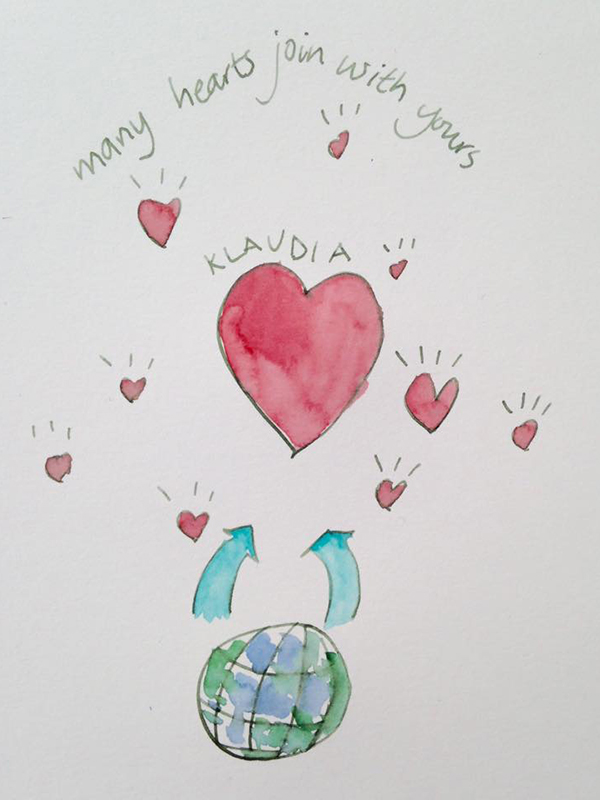 many hearts join with yours
KLAUDIA